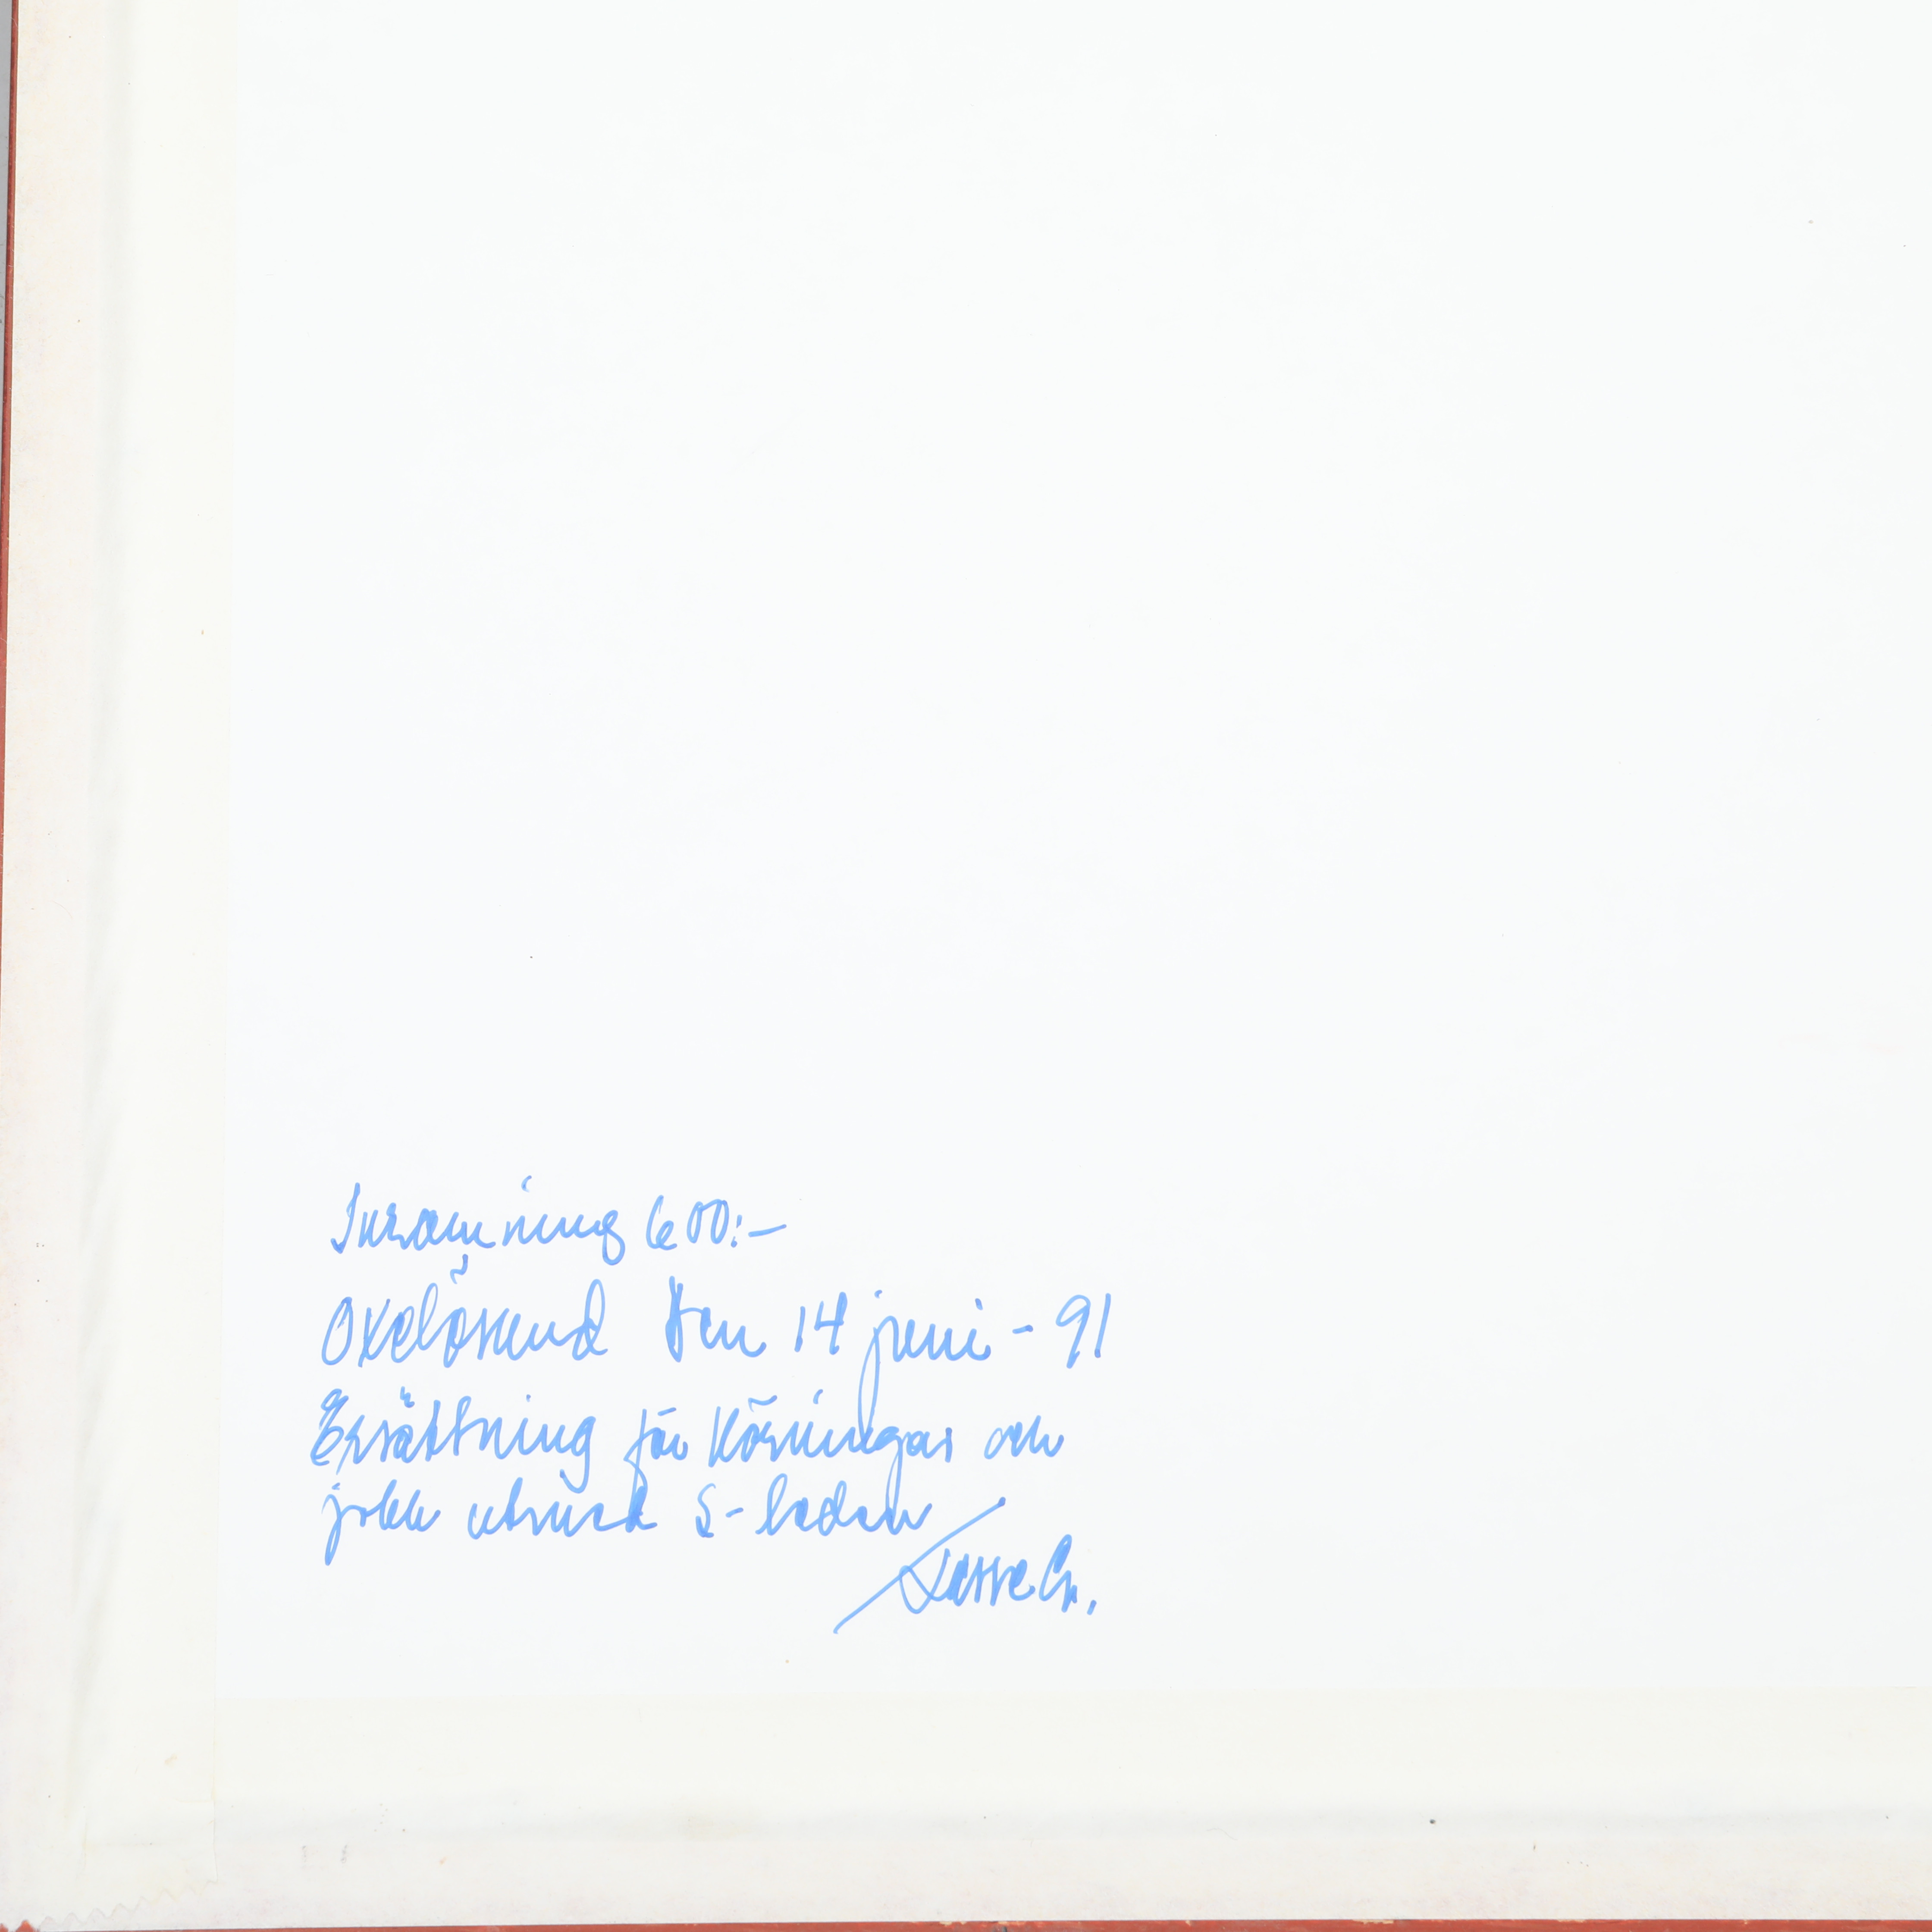 Inramning 600:-
Oxelösund den 14 juni - 91
Ersättning för körningar och
jobb S-boden
Lasse